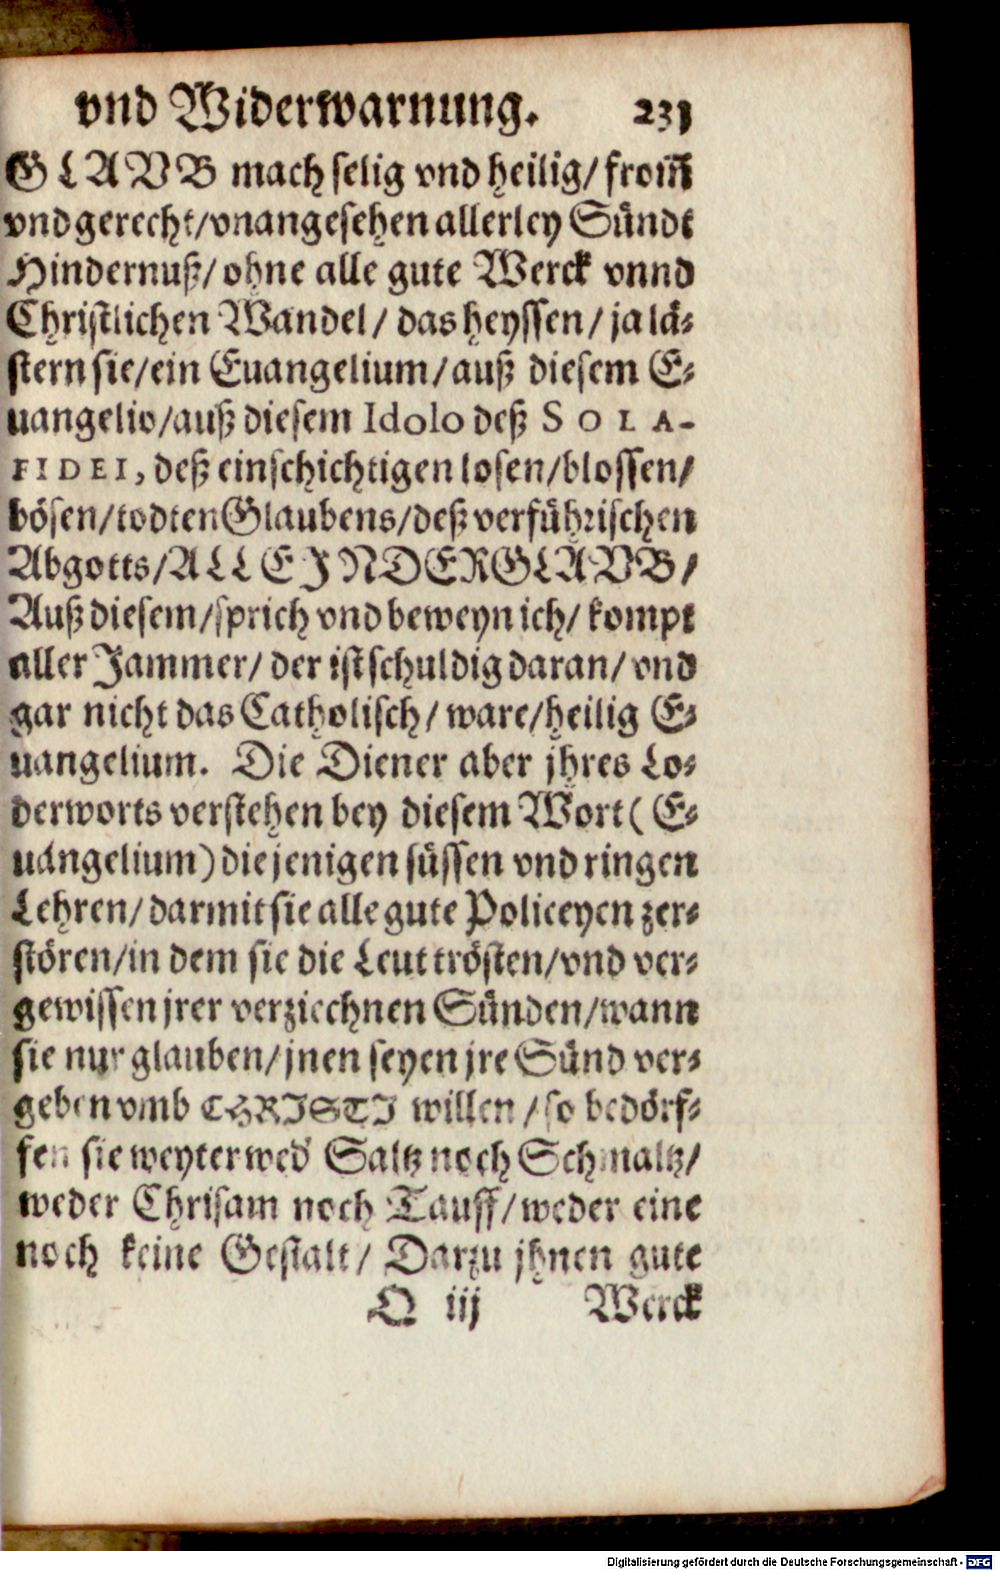 vnd Widerwarnung. 231
GLAVB mach selig vnd heilig/ from̃
vnd gerecht/vnangesehen allerley Sündt
Hindernuß/ ohne alle gute Werck vnnd
Christlichen Wandel/ das heyssen/ ja lä-
stern sie/ein Euangelium/auß diesem E-
uangelio/auß diesem Idolo deß SOLA-
FIDEI, deß einschichtigen losen/blossen/
bösen/todten Glaubens/deß verführischen
Abgotts/ALLEIN DER GLAVB/
Auß diesem/sprich vnd beweyn ich/ kompt
aller Jammer/ der ist schuldig daran/ vnd
gar nicht das Catholisch/ ware/heilig E-
uangelium. Die Diener aber jhres Lo-
derworts verstehen bey diesem Wort (E-
uangelium) die jenigen süssen vnd ringen
Lehren/ darmit sie alle gute Policeyen zer-
stören/in dem sie die Leut trösten/vnd ver-
gewissen jrer verziechnen Sünden/wann
sie nur glauben/jnen seyen jre Sünd ver-
geben vmb CHRISTI willen/so bedörf-
fen sie weyter wed̕ Saltz noch Schmaltz/
weder Chrisam noch Tauff/weder eine
noch keine Gestalt/ Darzu jhnen gute
Q iij Werck
Digitalisierung gefördert durch die Deutsche Forschungsgemeinschaft - DFG